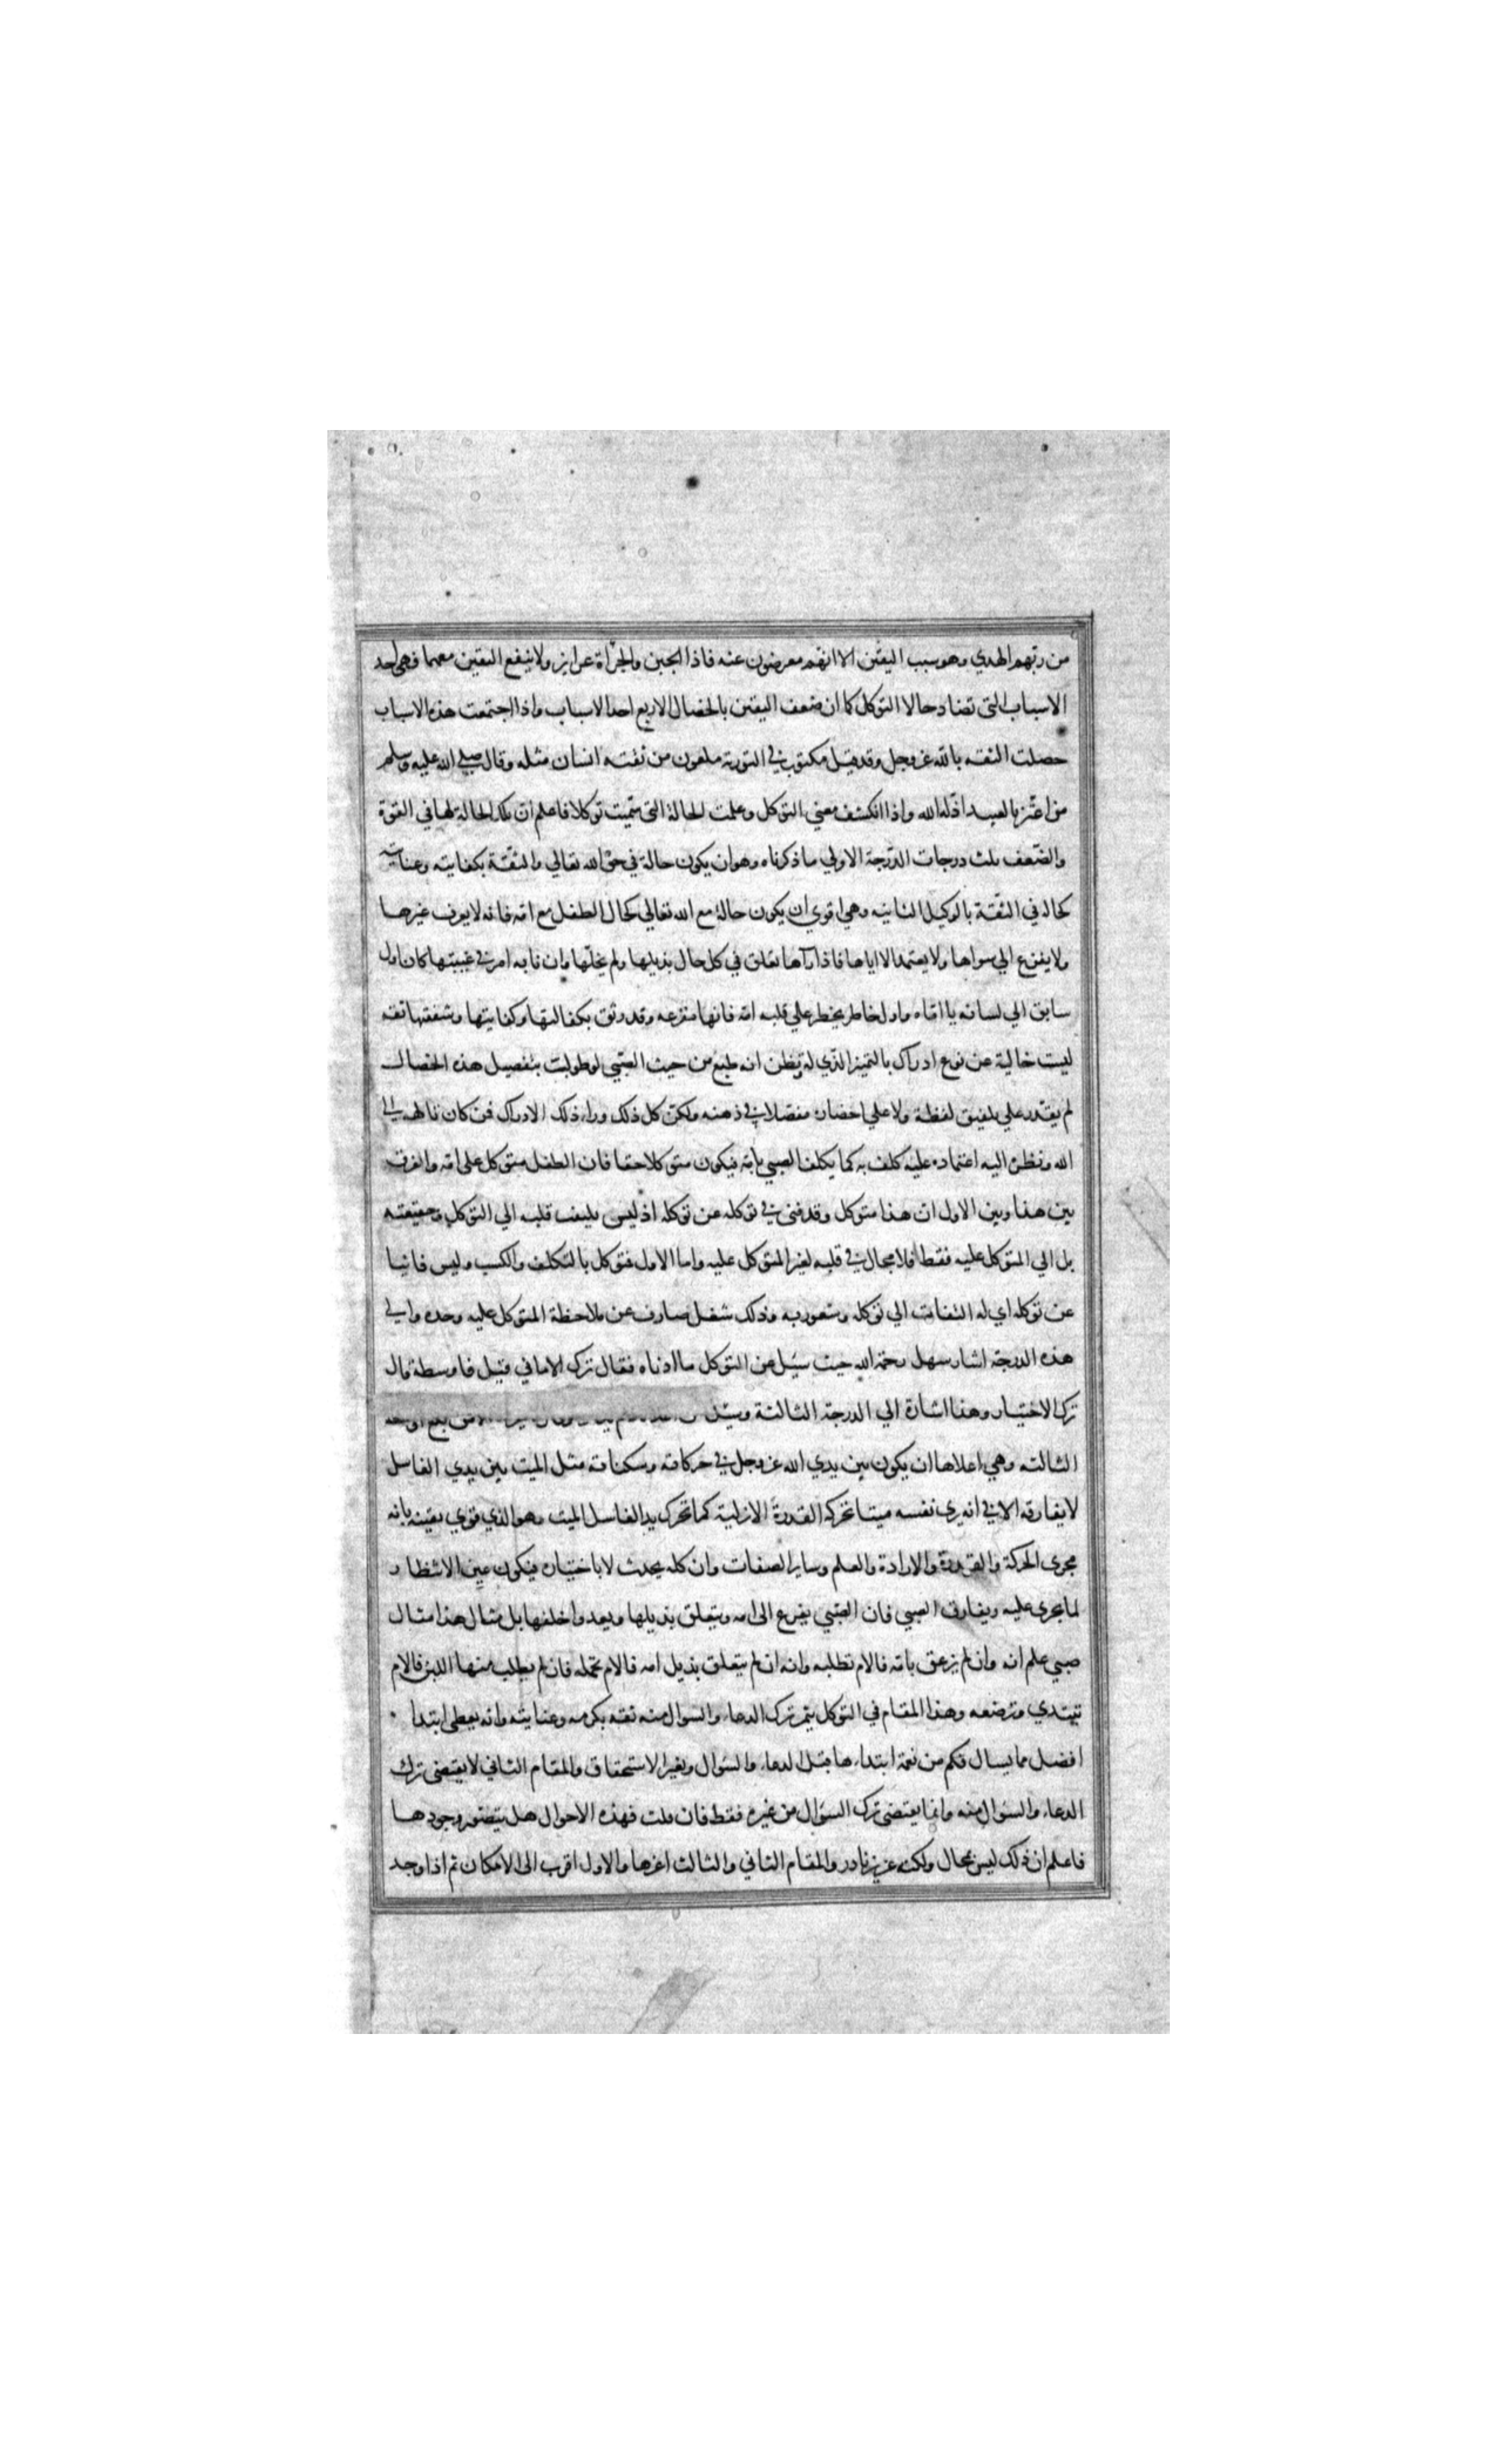 من ربهم الهدي وهو سبب اليقين الا انهم معرضون عنه فاذا الجبن والجرأة غرايز ولا ينفع اليقين معهما فهي احد
الاسباب التي تضاد حالا التوكل كما ان ضعف اليقين بالخصال الاربع احد الاسباب واذا اجتمعت هذه الاسباب
حصلت الثقه بالله عز وجل وقد قيل مكتوب في التورية ملعون من ثقته انسان مثله وقال صلي الله عليه وسلم
من اعتز بالعبيد اذله الله واذا انكشف معني التوكل وعلمت الحالة التي سميت توكلا فاعلم ان تلك الحالة لها في القوة
والضعف ثلث درجات الدرجة الاولي ما ذكرناه وهو ان يكون حالة في حق الله تعالي والثقة بكفايته وعنايته
كحاله في الثقة بالوكيل الثانيه وهي اقوي ان يكون حالة مع الله تعالي كحال الطفل مع امه فانه لا يعرف غيرها
ولا يفزع الي سواها ولا يعتمد الا اياها فاذا رآها تعلق في كل حال بذيلها ولم يخلها وان نابه امر في غيبتها كان اول
سابق الي لسانه يا اماه واول خاطر يخطر علي قلبه امه فانها مفزعه وقد وثق بكفالتها وكفايتها وشفقتها ثقه
ليست خالية عن نوع ادراك بالتميز الذي له ويظن انه طبع من حيث الصبي لو طولبت بتفصيل هذه الخصال
لم يقدر علي تلفيق لفظة ولا علي احضان مفصلا في ذهنه ولكن كل ذلك وراء ذلك الادراك فمن كان تالهه الي
الله ونظره اليه اعتماده عليه كلف به كما يكلف الصبي بامه فيكون متوكلا حقا فان الطفل متوكل علي امه والفرق
بين هذا وبين الاول ان هذا متوكل وقد فني في توكله عن توكله اذ ليس يلتفت قلبه الي التوكل وحقيقته
بل الي المتوكل عليه فقط فلا مجال في قلبه لغير المتوكل عليه واما الاول فتوكل بالتكلف والكسب وليس فانيا
عن توكله اي له التفات الي توكله وشعور به وذلك شغل صارف عن ملاحظة المتوكل عليه وحده والي
هذه الدرجة اشار سهل رحمة الله حيث سئيل عن التوكل ما ادناه فقال ترك الاماني قيل فاوسطة قال
ترك الاختيار وهذا اشارة الي الدرجة الثالثة وسئل
الثالثه وهي اعلاها ان يكون بين يدي الله عز وجل في حركاته وسكناته مثل الميت بين يدي الغاسل
لا يفارقه الا في انه يري نفسه ميتا تحركه القدرة الازلية كما تحرك يد الغاسل الميت وهو الذي قوي يقينه بانه
مجري الحركة والقدرة والارادة والعلم وساير الصفات وان كله يحدث لا باختياره فيكون عين الانتظار
لما يجري عليه ويفارق الصبي فان الصبي يفزع الي امه ويتعلق بذيلها ويعدوا خلفها بل مثال هذا مثال
صبي علم انه وان لم يزعق بامه فالام تطلبه وانه ان لم يتعلق بذيل امه فالام تحمله فان لم يطلب منها اللبن فالام
تبتدي وترضعه وهذا المقام في التوكل يثمر ترك الدعاء والسوال منه ثقه بكرمه وعنايته وانه يعطي ابتدا
افضل مما يسال فكم من نعمة ابتداءها قبل الدعاء والسوال وبغير الاستحقاق والمقام الثاني لا يقتضي ترك
الدعاء والسوال منه وانما يقتضي ترك السوال من غيره فقط فان قلت فهذه الاحوال هل يتصور وجودها
فاعلم ان ذلك ليس بمحال ولكنه عزيز نادر والمقام الثاني والثالث اعزها والاول اقرب الي الامكان ثم اذا وجد